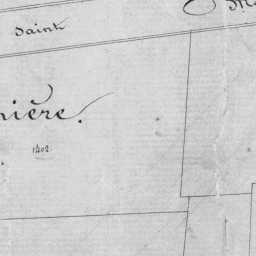 Saint
nière.
1402